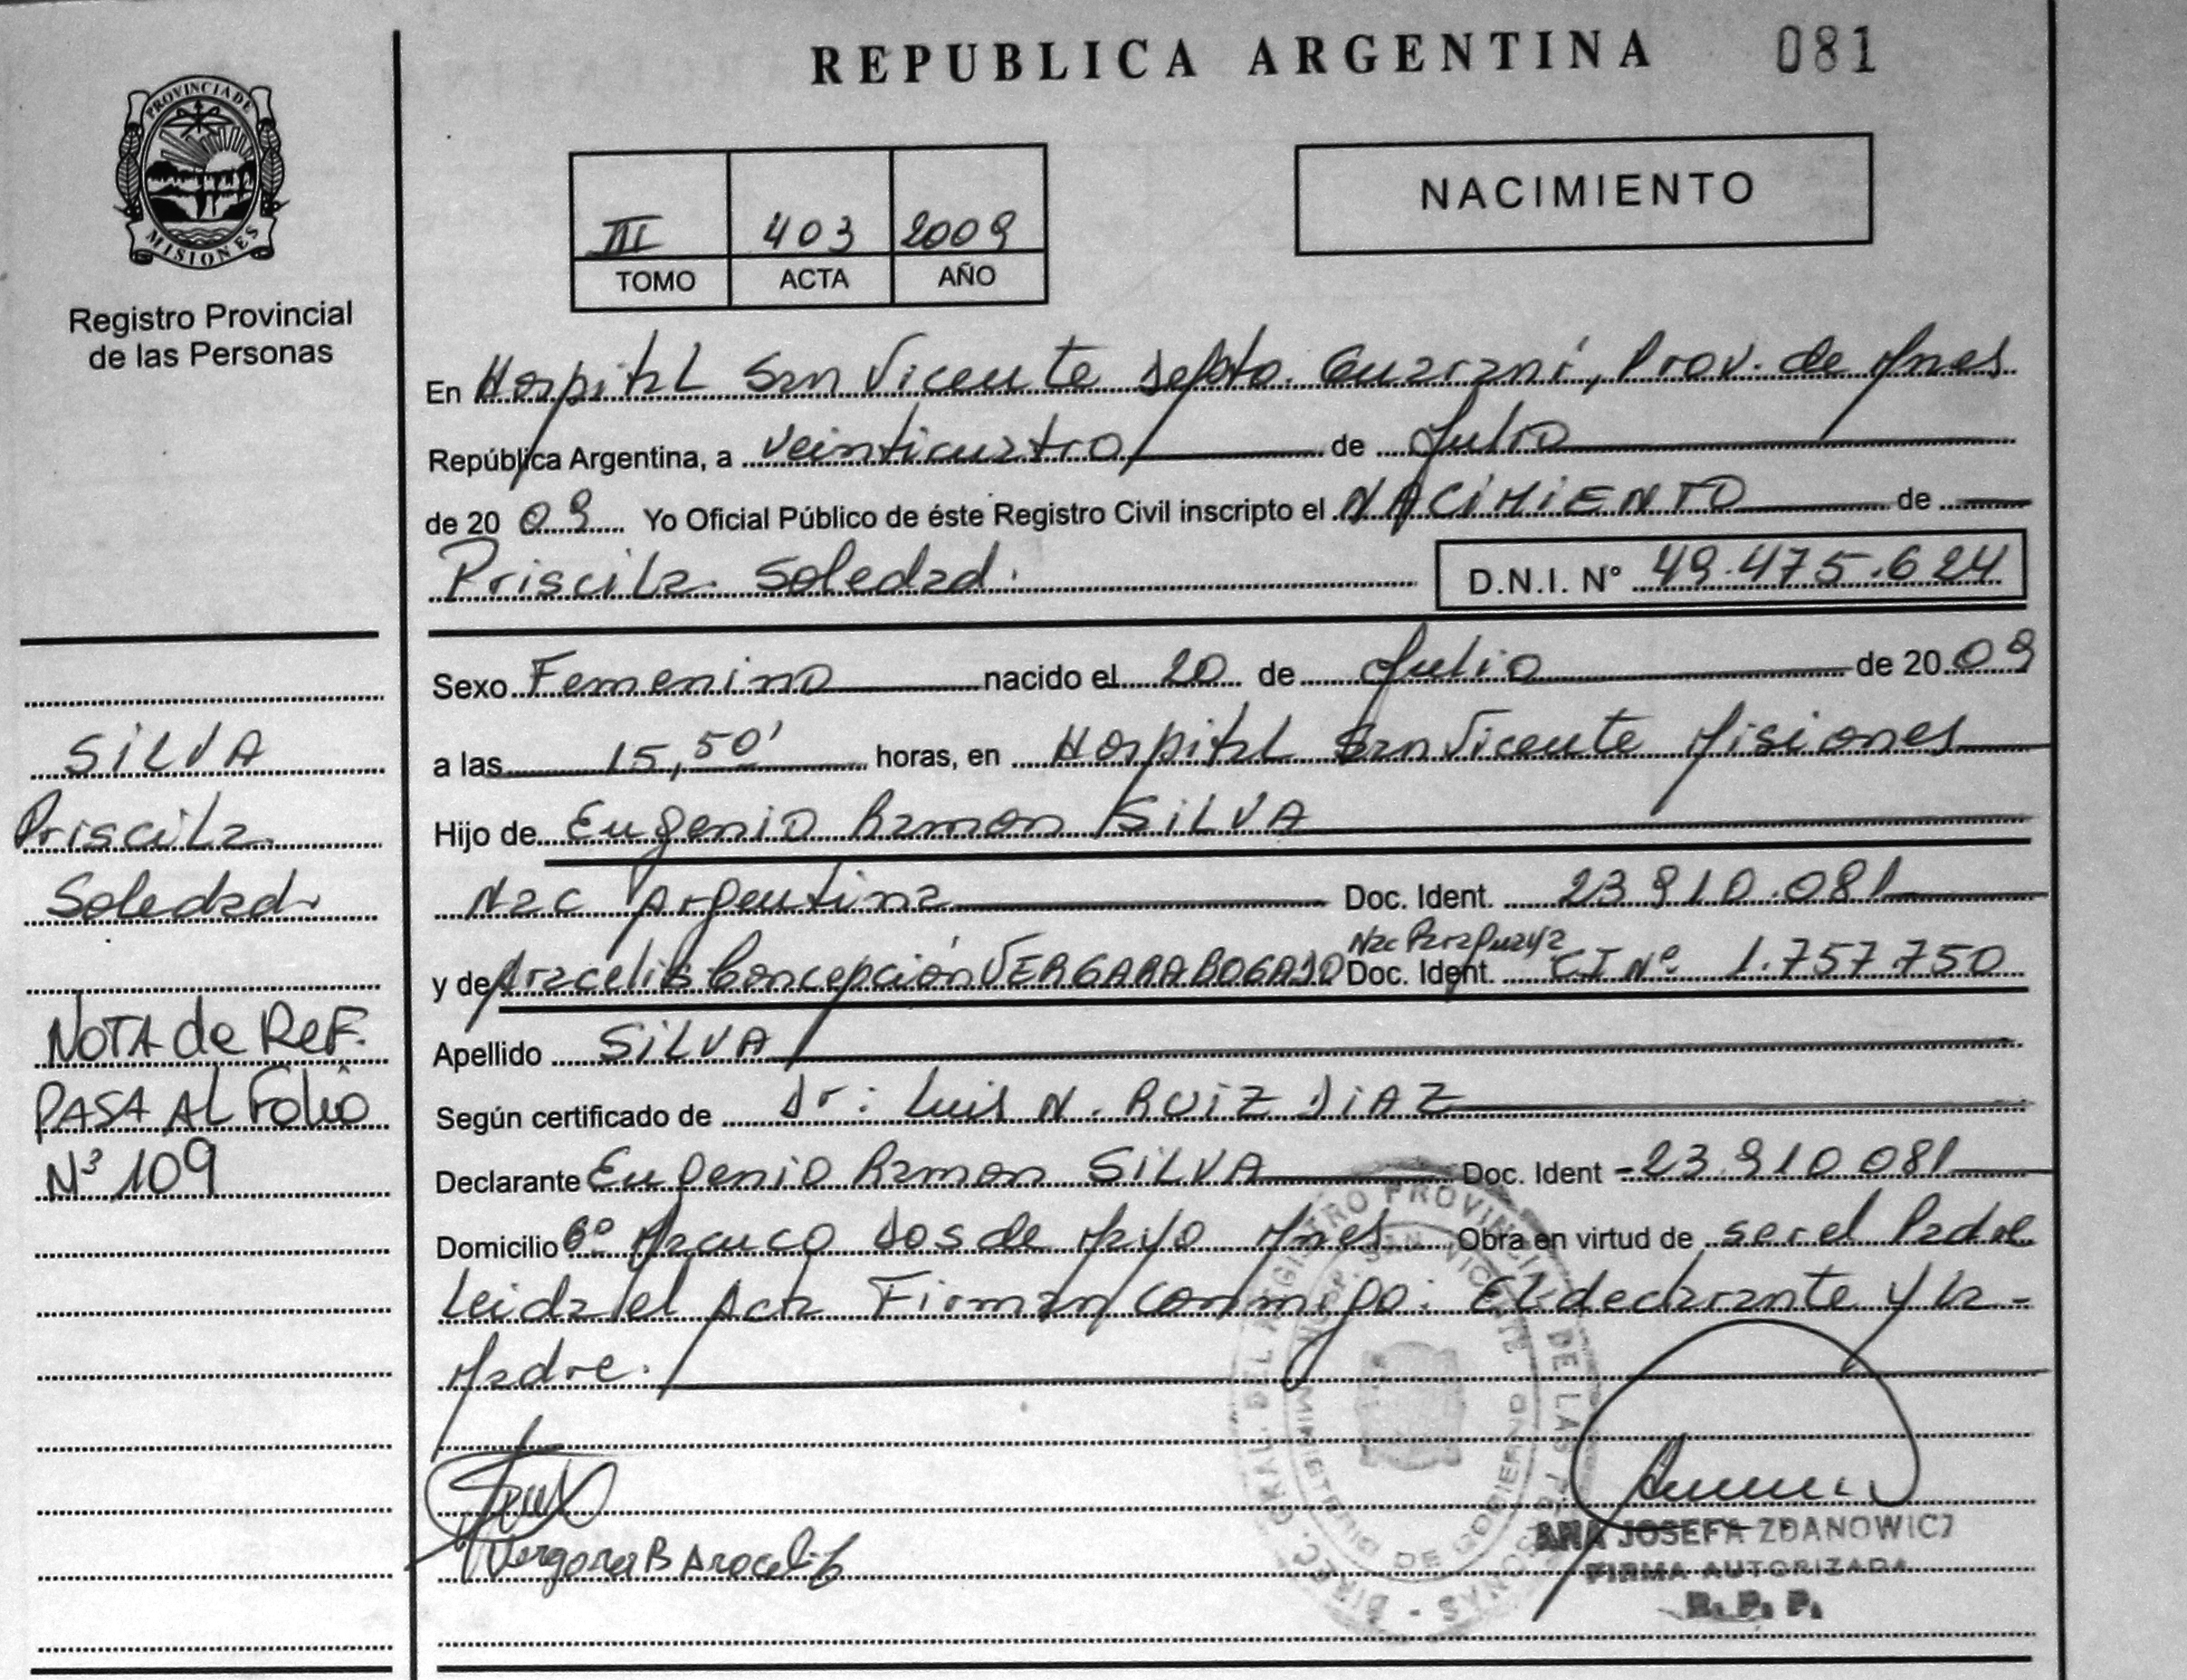 REPUBLICA ARGENTINA 081
PROVINCIA DE
MISIONES
Registro Provincial
de las Personas
III 403 2009
TOMO ACTA AÑO
NACIMIENTO
En Hospital San Vicente Depto. Guaraní, Prov. de Mnes
República Argentina, a veinticuatro de Julio
de 2009 Yo Oficial Público de éste Registro Civil inscripto el NACIMIENTO de
Priscila Soledad. D.N.I. N° 49.475.624
Sexo Femenino nacido el 20 de Julio de 2009
a las 15,50' horas, en Hospital San Vicente Misiones
Hijo de Eugenio Ramon SILVA
Nac Argentina Doc. Ident. 23.910.081
Nac Paraguaya
y de Aracelis Concepción VERGARA BOGADO Doc. Ident. CI N° 1.757.750
Apellido SILVA
Según certificado de Dr: Luis N. RUIZ DIAZ
Declarante Eugenio Ramon SILVA Doc. Ident - 23.910.081
Domicilio Bº Macuco Dos de Mayo Mnes Obra en virtud de ser el Padre
Leida el Acta Firman conmigo: El declarante y la -
Madre.
SILVA
Priscila
Soledad
NOTA de REF.
PASA AL Folio
Nº 109
Vergara B Aracelis
DIREC. GRAL. DEL REGISTRO PROVINCIAL DE LAS PERSONAS -
HOSP. SAN VICENTE
MINISTERIO DE GOBIERNO
ANA JOSEFA ZDANOWICZ
FIRMA AUTORIZADA
R. P. P.